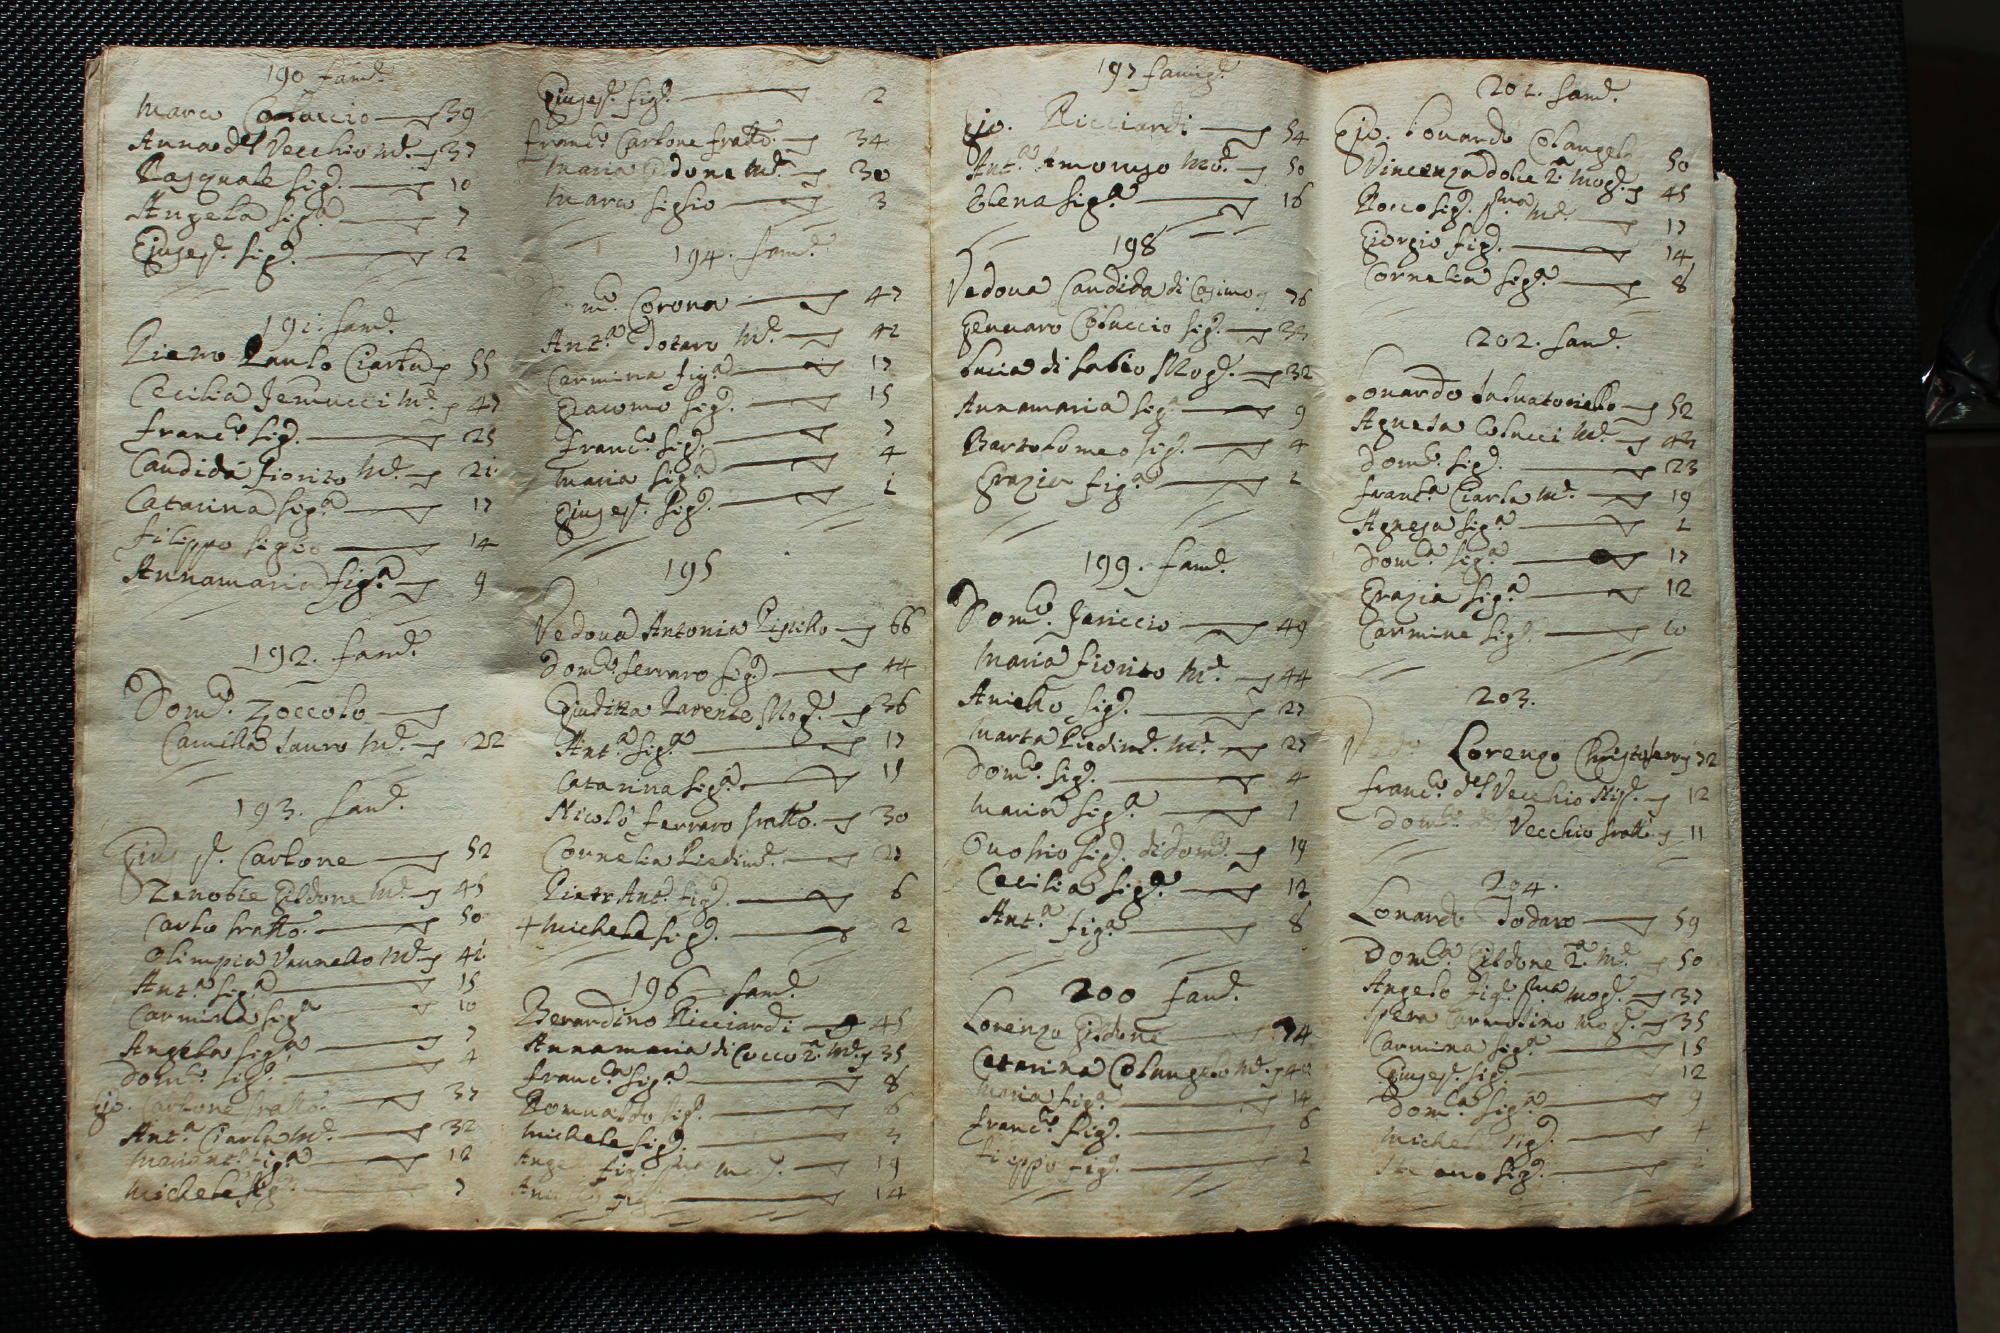 190 famᵉ.
Marco Coluccio 39
Anna del Vecchio Mᵉ. 37
Pasquale figᵒ. 10
Angela figᵃ 7
Giuseᵉ. figᵒ. 2
191. famᵉ.
Pietro Paulo Ciarla 55
Cecilia Mᵉ. 47
Francᵒ. figᵒ. 25
Candida Fiorito Mᵉ. 21
Catarina figᵃ 17
Filippo figlio 14
Annamaria figᵃ 9
192. famᵉ.
Domᶜᵒ. Zoccolo
Camilla Tauro Mᵉ. 22
193. famᵉ.
Giuseᵉ. Carbone 52
Zenobie Gildone Mᵉ. 45
Carlo fratto. 50
Olimpia Vannello Mᵉ. 41
Antᵃ. figᵃ 15
Carmina figᵃ 10
Angela figᵃ 7
Domᶜᵒ. figᵒ. 4
Gio. Carbone fratto. 37
Antᵃ Ciarla Mᵉ. 32
figᵃ 12
Michele figᵒ. 7
Giuseᵉ. figᵒ. 2
Francᵒ. Carbone fratto. 34
Maria Gildone Mᵉ. 30
Marco figlio 3
194. famᵉ.
Corona 47
Antᵃ Dotaro Mᵉ. 42
Carmina figᵃ 17
Giacomo figᵒ. 15
Francᵒ. figᵒ. 7
Maria figᵃ 4
Giuseᵉ. figᵒ. 1
195
Vedova Antonia 66
Domᶜᵒ Ferraro figᵒ 44
Giuditta Parente Mogᵉ. 36
Antᵃ figᵃ 17
Catarina figᵃ 15
Nicolò Ferraro fratto. 30
Cornelia Piedimᵉ. 27
Pietr' Antᵒ. figᵒ. 6
+ Michele figᵒ. 2
196 famᵉ.
Berardino Ricciardi 45
Annamaria di Cocco 2ᵃ. Mᵉ. 35
Francᵃ figᵃ 8
Romualdo figᵒ. 6
Michele figᵒ. 3
figᵒ. 19
14
197 famigᵉ.
Gio. Ricciardi 54
Antᵃ Amoruso Moᵉ. 50
Elena figᵃ 16
198
Vedova Candida di Cosimo 76
Gennaro Coluccio figᵒ. 34
Lucia di Fabio Mogᵉ. 32
Annamaria figᵃ 9
Bartolomeo figᵒ. 4
Grazia figᵃ 2
199. famᵉ.
Domᶜᵒ. Iariccio 49
Maria Fiorito Mᵉ. 44
Aniello figᵒ. 27
Marta Piedimᵉ. Mᵉ. 27
Domᶜᵒ. figᵒ. 4
Maria figᵃ 1
Onofrio figᵒ. di Domᶜᵒ. 19
Cecilia figᵃ 12
Antᵃ figᵃ 8
200 famᵉ.
Lorenzo Gildone 54
Catarina Colangelo Mᵉ. 40
Maria figᵃ 14
Francᵒ. figᵒ. 6
figᵒ. 2
202. famᵉ.
Gio. Lonardo Colangelo 50
Vincenza Dolce 2ᵃ. Mogᵉ. 45
Rocco figᵒ. pᵐᵃ Mᵉ. 17
Giorgio figᵒ. 14
Cornelia figᵃ 8
202. famᵉ.
Lonardo Salvatoriello 52
Agnesa Colucci Mᵉ. 43
Domᶜᵒ. figᵒ. 23
Francᵃ Ciarla Mᵉ. 19
Agnesa figᵃ 2
Domᶜᵃ figᵃ 17
Grazia figᵃ 12
Carmine figᵒ. 10
203.
Lorenzo 72
Francᵒ. del Vecchio 12
Domᶜᵒ. Vecchio fratto. 11
204.
Lonardo Todaro 59
Domᶜᵃ Gildone 2ᵃ. Mᵉ. 50
Angelo figᵒ. pᵐᵃ Mogᵉ. 37
Carmosino Mogᵉ. 35
Carmina figᵃ 15
Giuseᵉ. figᵒ. 12
Domᶜᵃ figᵃ 9
Michele figᵒ. 4
figᵒ.